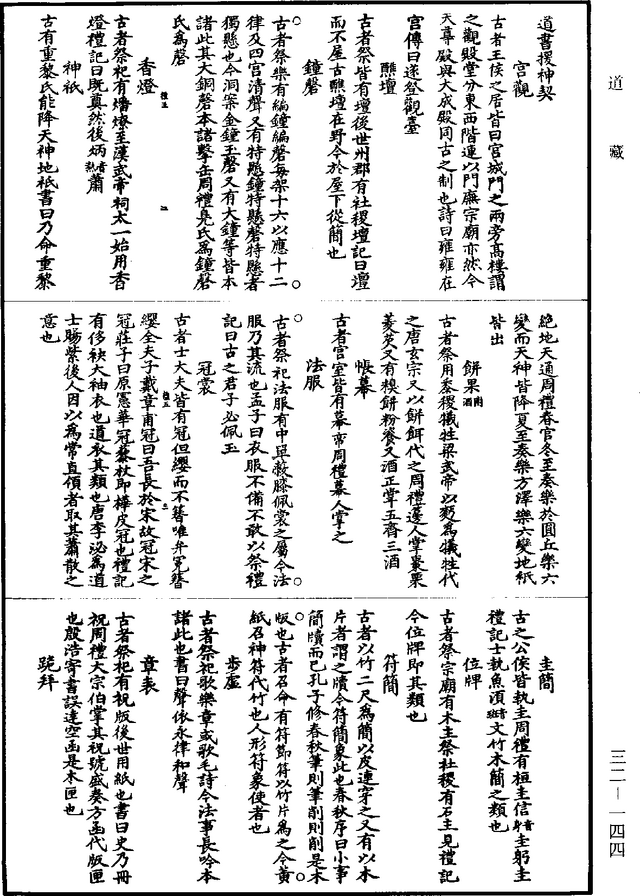 道藏
道書援神契
宮觀
古者王侯之居皆曰宮城門之兩旁高樓謂
之觀殿堂分東西階連以門廡宗廟亦然今
天尊殿與大成殿同古之制也詩曰雍雍在
宮傳曰遂登觀臺
醮壇
古者祭皆有壇後世州郡有社稷壇記曰壇
而不屋古醮壇在野今於屋下從簡也
鐘磬
古者祭樂有編鐘編磬每架十六以應十二
律及四宮清聲又有特懸鐘特懸磬特懸者
獨懸也今洞案金鐘玉磬又有大鐘等皆本
諸此其大鋼磬本諸擊缶周禮鳧氏為鐘磬
氏為磬
香燈
古者祭祀有燔燎至漢武帝祠太一始用香
燈禮記曰既奠然後炳蕭
神祇
古有重黎氏能降天神地祇書曰乃命重黎
絶地天通周禮春官冬至奏樂於圓丘樂六
變而天神皆降夏至奏樂方澤樂六變地祇
皆出
餅果酒附
古者祭用黍稷犧牲梁武帝以麪為犧牲代
之唐玄宗又以餅餌代之周禮籩人掌棗栗
菱芡又有糗餅粉餈又酒正掌五齊三酒
帳幕
古者宮室皆有幕帟周禮幕人掌之
法服
古者祭祀法服有中單敝膝佩裳之屬今法
服乃其流也孟子曰衣服不備不敢以祭禮
記曰古之君子必佩玉
冠裳
古者士大夫皆有冠但纓而不簪唯弁冕簪
纓全夫子戴章甫冠曰吾長於宋故冠宋之
冠莊子曰原憲華冠藜杖即樺皮冠也禮記
有侈袂大袖衣也道衣其類也唐李泌為道
士賜紫後人因以為常直領者取其蕭散之
意也
圭簡
古之公侯皆執圭周禮有桓圭信圭躬圭
禮記士執魚須文竹木簡之類也
位牌
古者祭宗廟有木主祭社稷有石主見禮記
今位牌即其類也
符簡
古者以竹二尺為簡以皮連穿之又有以木
片者謂之牘今符簡象此也春秋序曰小事
簡牘而已孔子修春秋筆則筆削則削是木
版也古者召命有符節符以竹片為之今黄
紙召神符代竹也人形符象使者也
步虛
古者祭祀歌樂章或歌毛詩今法事長吟本
諸此也書曰聲依永律和聲
章表
古者祭祀有祝版後世用紙也書曰史乃冊
祝周禮大宗伯掌其祝號盛奏方函代版匣
也殷浩寄書誤達空函是木匣也
跪拜
三二—一四四